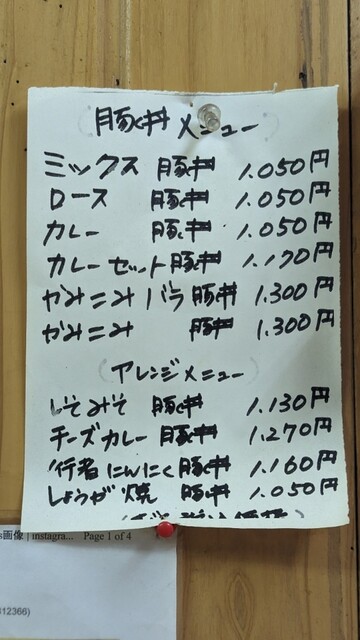 (豚丼メニュー)
ミックス 豚丼 1.050円
ロース 豚丼 1.050円
カレー 豚丼 1.050円
カレーセット豚丼 1.170円
かみこみバラ豚丼 1.300円
かみこみ 豚丼 1.300円
(アレンジメニュー)
しそみそ 豚丼 1.130円
チーズカレー豚丼 1.270円
行者にんにく豚丼 1.160円
しょうが焼 豚丼 1.050円
s画像 | instagra... Page 1 of 4
312366)